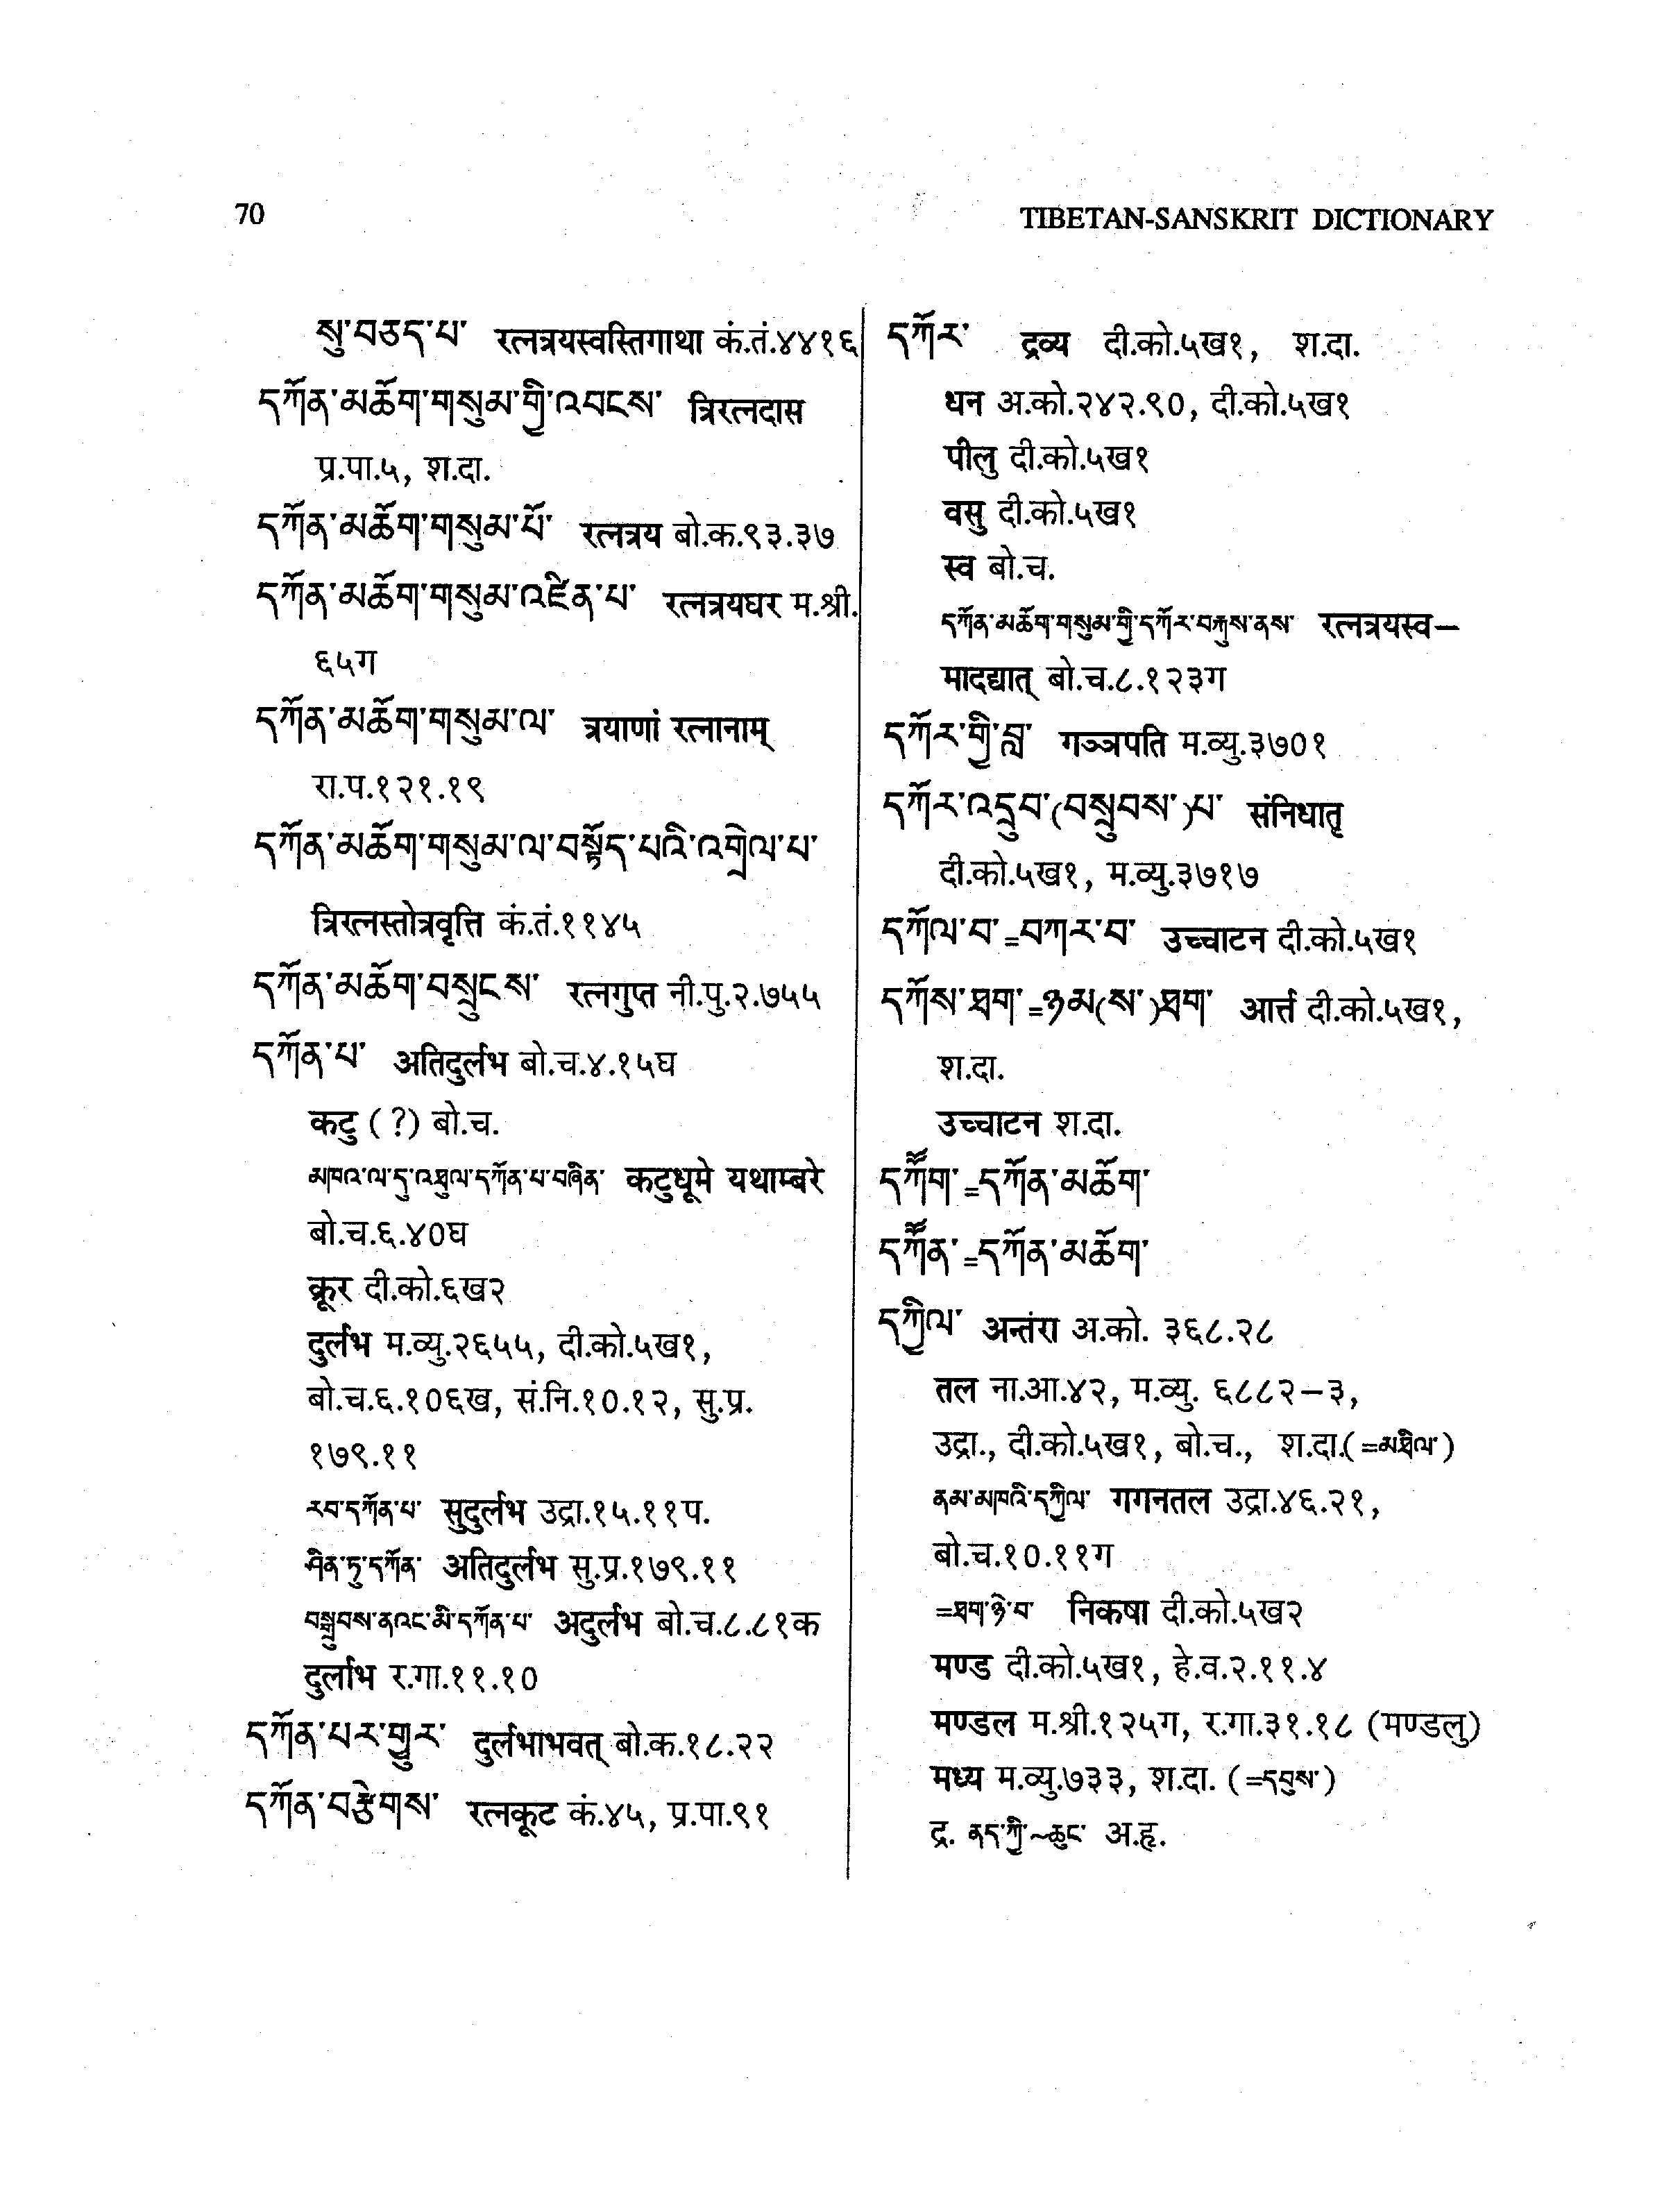 70
TIBETAN-SANSKRIT DICTIONARY
སུ་བཅད་པ་ रत्नत्रयस्वस्तिगाथा कं.तं.४४१६
དཀོན་མཆོག་གསུམ་གྱི་འབངས་ त्रिरत्नदास
प्र.पा.५, श.दा.
དཀོན་མཆོག་གསུམ་པོ་ रत्नत्रय बो.क.९३.३७
དཀོན་མཆོག་གསུམ་འཛིན་པ་ रत्नत्रयघर म.श्री.
६५ग
དཀོན་མཆོག་གསུམ་ལ་ त्रयाणां रत्नानाम्
रा.प.१२१.१९
དཀོན་མཆོག་གསུམ་ལ་བསྟོད་པའི་འགྲེལ་པ་
त्रिरत्नस्तोत्रवृत्ति कं.तं.११४५
དཀོན་མཆོག་བསྲུངས་ रत्नगुप्त नी.पु.२.७५५
དཀོན་པ་ अतिदुर्लभ बो.च.४.१५घ
कटु (?) बो.च.
མཁའ་ལ་དུ་འཐུལ་དཀོན་པ་བཞིན་ कटुधूमे यथाम्बरे
बो.च.६.४0घ
क्रूर दी.को.६ख२
दुर्लभ म.व्यु.२६५५, दी.को.५ख१,
बो.च.६.१0६ख, सं.नि.१0.१२, सु.प्र.
१७९.११
རབ་དཀོན་པ་ सुदुर्लभ उद्रा.१५.११प.
ཤིན་ཏུ་དཀོན་ अतिदुर्लभ सु.प्र.१७९.११
བསྒྲུབས་ནའང་མི་དཀོན་པ་ अदुर्लभ बो.च.८.८१क
दुर्लाभ र.गा.११.१0
དཀོན་པར་གྱུར་ दुर्लभाभवत् बो.क.१८.२२
དཀོན་བརྩེགས་ रत्नकूट कं.४५, प्र.पा.९१
དཀོར་ द्रव्य दी.को.५ख१, श.दा.
धन अ.को.२४२.९0, दी.को.५ख१
पीलु दी.को.५ख१
वसु दी.को.५ख१
स्व बो.च.
དཀོན་མཆོག་གསུམ་གྱི་དཀོར་བརྐུས་ནས་ रत्नत्रयस्व–
मादद्यात् बो.च.८.१२३ग
དཀོར་གྱི་བླ་ गञ्जपति म.व्यु.३७0१
དཀོར་འདྲུབ་(བསྲུབས་)པ་ संनिधातृ
दी.को.५ख१, म.व्यु.३७१७
དཀོལ་བ་=བཀར་བ་ उच्चाटन दी.को.५ख१
དཀོས་ཐག་=ཉམ(ས་)ཐག་ आर्त्त दी.को.५ख१,
श.दा.
उच्चाटन श.दा.
དཀཽག་=དཀོན་མཆོག་
དཀཽན་=དཀོན་མཆོག་
དཀྱིལ་ अन्तंरा अ.को. ३६८.२८
तल ना.आ.४२, म.व्यु. ६८८२–३,
उद्रा., दी.को.५ख१, बो.च., श.दा.(=མཐིལ་)
ནམ་མཁའི་དཀྱིལ་ गगनतल उद्रा.४६.२१,
बो.च.१0.११ग
=ཐག་ཉེ་བ་ निकषा दी.को.५ख२
मण्ड दी.को.५ख१, हे.व.२.११.४
मण्डल म.श्री.१२५ग, र.गा.३१.१८ (मण्डलु)
मध्य म.व्यु.७३३, श.दा. (=དབུས་)
द्र. ནད་ཀྱི་~ཆུང་ अ.हृ.